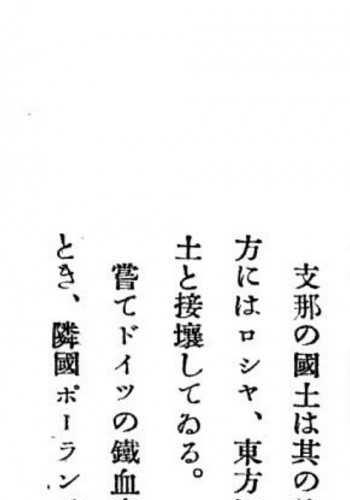 支那の國土は其の
方にはロシヤ、東方
土と接壤してゐる。
嘗てドイツの鐵血
とき、隣國ポーラン